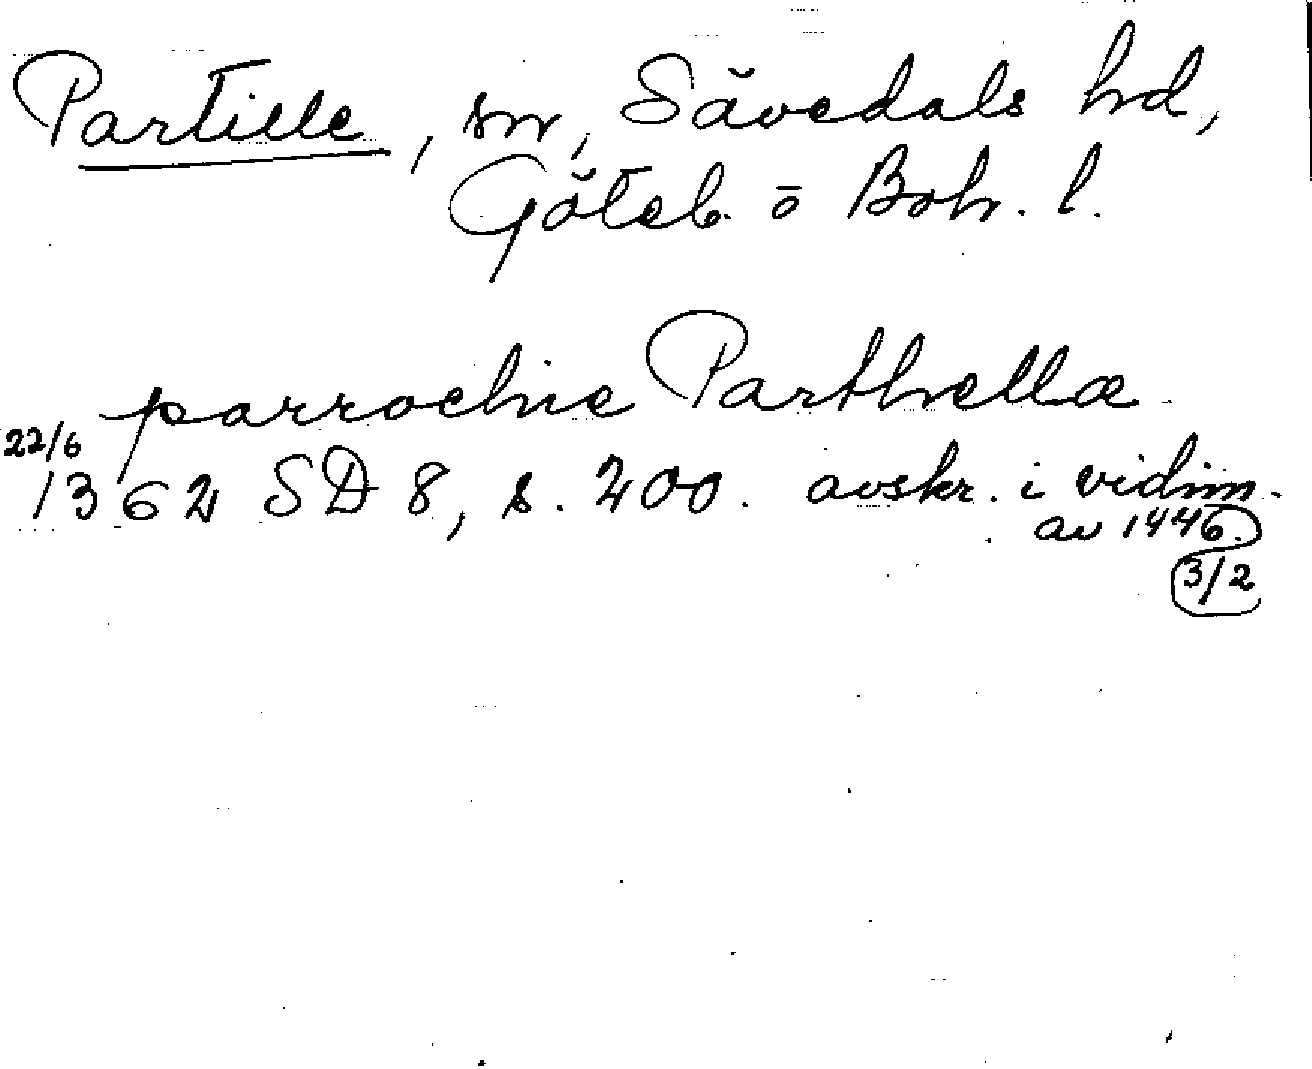 Partille, sn, Sävedals hd,
Göteb. o Boh. l.
parrochie Parthella
22/6
1362 SD 8, s. 200. avskr. i vidim.
av 1446.
3/2